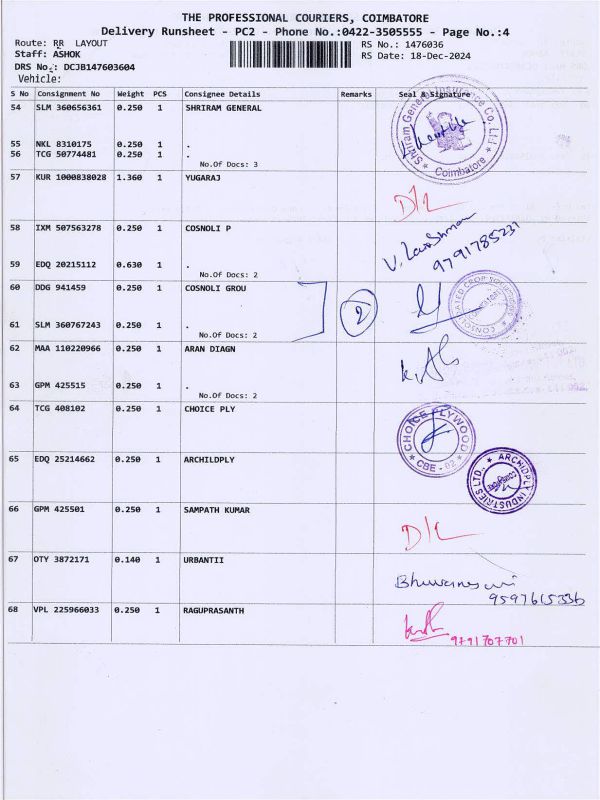 THE PROFESSIONAL COURIERS, COIMBATORE
Delivery Runsheet - PC2 - Phone No.:0422-3505555 - Page No.:4
Route: RR LAYOUT
Staff: ASHOK
DRS No.: DCJB147603604
Vehicle:
RS No.: 1476036
RS Date: 18-Dec-2024
S No Consignment No Weight PCS Consignee Details Remarks Seal & Signature
54 SLM 360656361 0.250 1 SHRIRAM GENERAL
Shriram General Insurance Co. Ltd.
* Coimbatore *
55 NKL 8310175 0.250 1 .
56 TCG 50774481 0.250 1 .
No.Of Docs: 3
57 KUR 1000838028 1.360 1 YUGARAJ
D/L
58 IXM 507563278 0.250 1 COSNOLI P
9791785231
59 EDQ 20215112 0.630 1 .
No.Of Docs: 2
60 DDG 941459 0.250 1 COSNOLI GROU
2
61 SLM 360767243 0.250 1 .
No.Of Docs: 2
62 MAA 110220966 0.250 1 ARAN DIAGN
63 GPM 425515 0.250 1 .
No.Of Docs: 2
64 TCG 408102 0.250 1 CHOICE PLY
CHOICE PLYWOOD
* CBE - 02 *
65 EDQ 25214662 0.250 1 ARCHILDPLY
ARCHIDPLY INDUSTRIES LTD.
66 GPM 425501 0.250 1 SAMPATH KUMAR
D/L
67 OTY 3872171 0.140 1 URBANTII
9597615336
68 VPL 225966033 0.250 1 RAGUPRASANTH
9791707701